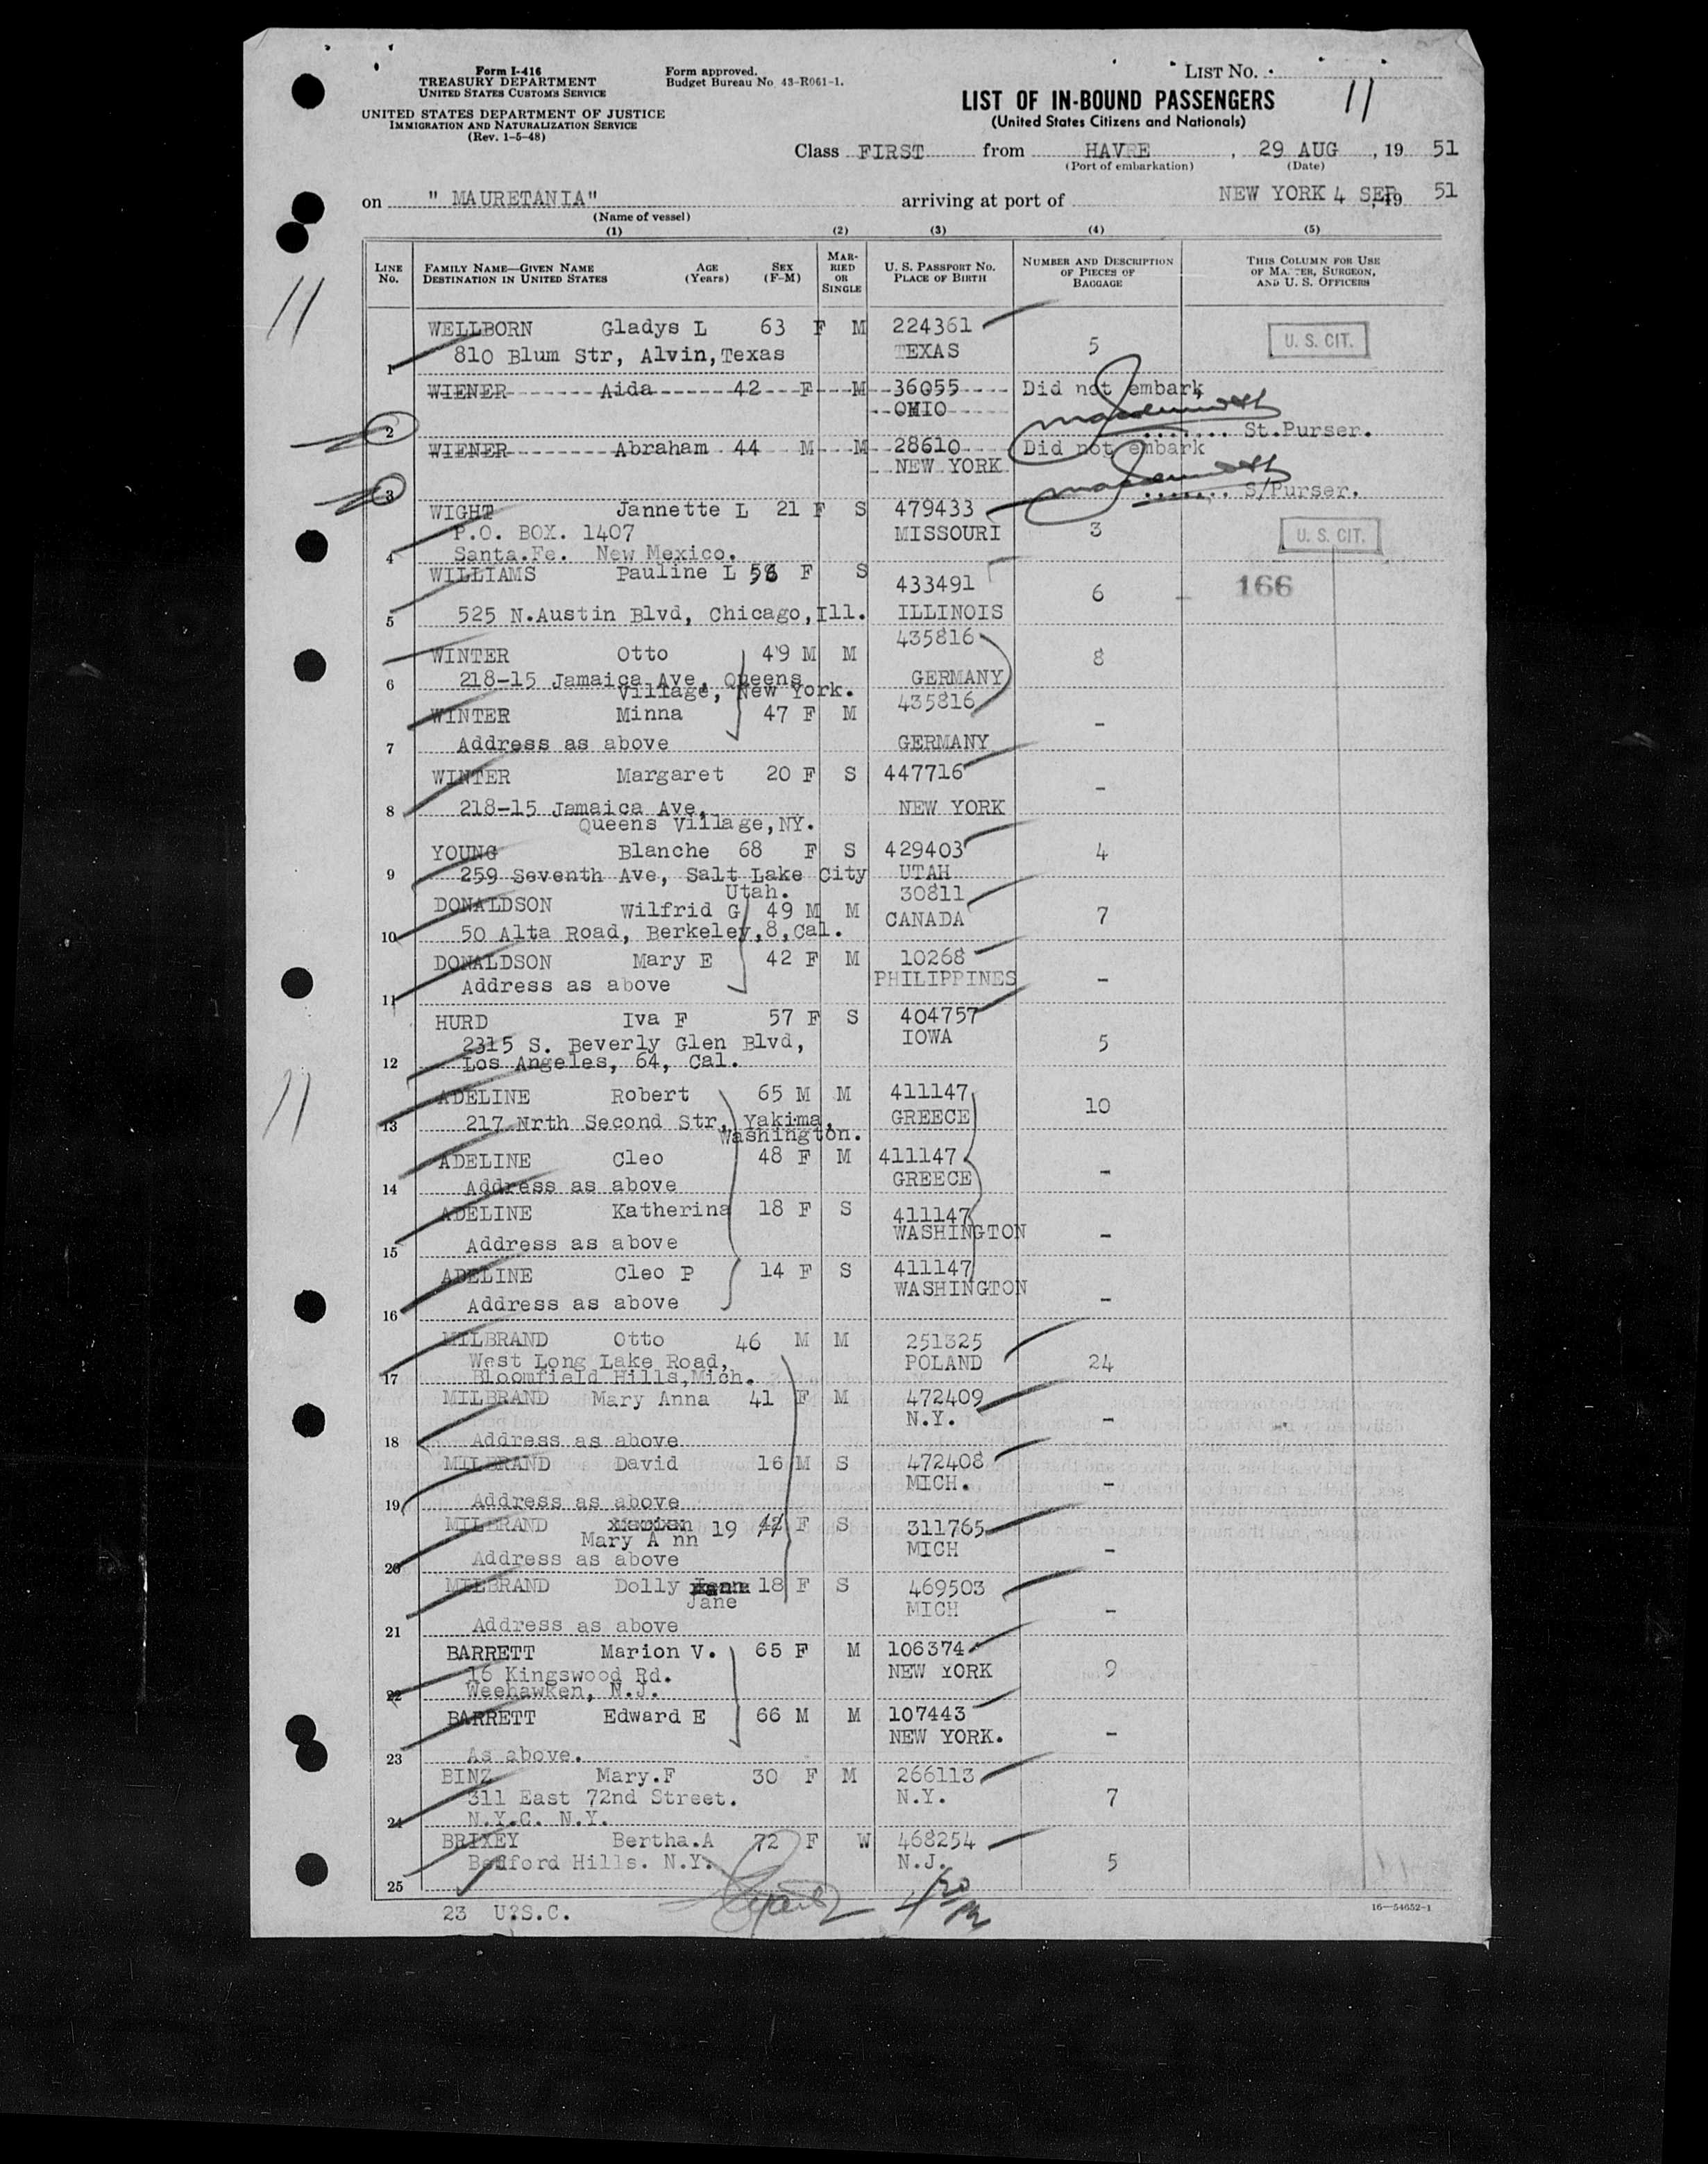 Form I-416
TREASURY DEPARTMENT
UNITED STATES CUSTOMS SERVICE
UNITED STATES DEPARTMENT OF JUSTICE
IMMIGRATION AND NATURALIZATION SERVICE
(Rev. 1-5-48)
Form approved.
Budget Bureau No. 43-R061-1.
LIST NO.
11
LIST OF IN-BOUND PASSENGERS
(United States Citizens and Nationals)
Class FIRST from HAVRE, 29 AUG, 19 51
(Port of embarkation) (Date)
on "MAURETANIA" arriving at port of NEW YORK 4 SEP, 19 51
(Name of vessel)
(1) (2) (3) (4) (5)
LINE NO.
FAMILY NAME—GIVEN NAME
DESTINATION IN UNITED STATES
AGE (Years)
SEX (F-M)
MARRIED OR SINGLE
U. S. PASSPORT NO.
PLACE OF BIRTH
NUMBER AND DESCRIPTION OF PIECES OF BAGGAGE
THIS COLUMN FOR USE OF MASTER, SURGEON, AND U. S. OFFICERS
11
WELLBORN Gladys L 63 F M 224361
1 810 Blum Str, Alvin, Texas TEXAS 5 U. S. CIT.
WIENER Aida 42 F M 36055 Did not embark
2 OHIO St.Purser.
WIENER Abraham 44 M M 28610 Did not embark
3 NEW YORK S/Purser.
WIGHT Jannette L 21 F S 479433
P.O. BOX. 1407 MISSOURI 3 U. S. CIT.
4 Santa.Fe. New Mexico.
WILLIAMS Pauline L 56 F S 433491 6 166
5 525 N.Austin Blvd, Chicago, Ill. ILLINOIS
WINTER Otto 49 M M 435816 8
6 218-15 Jamaica Ave, Queens GERMANY
Village, New York.
WINTER Minna 47 F M 435816 -
7 Address as above GERMANY
WINTER Margaret 20 F S 447716 -
8 218-15 Jamaica Ave, NEW YORK
Queens Village, NY.
YOUNG Blanche 68 F S 429403 4
9 259 Seventh Ave, Salt Lake City UTAH
Utah.
DONALDSON Wilfrid G 49 M M 30811 7
10 50 Alta Road, Berkeley,8,Cal. CANADA
DONALDSON Mary E 42 F M 10268
11 Address as above PHILIPPINES -
HURD Iva F 57 F S 404757
2315 S. Beverly Glen Blvd, IOWA 5
12 Los Angeles, 64, Cal.
11
ADELINE Robert 65 M M 411147 10
13 217 Nrth Second Str, Yakima, GREECE
Washington.
ADELINE Cleo 48 F M 411147 -
14 Address as above GREECE
ADELINE Katherina 18 F S 411147
15 Address as above WASHINGTON -
ADELINE Cleo P 14 F S 411147
16 Address as above WASHINGTON -
MILBRAND Otto 46 M M 251325
West Long Lake Road, POLAND 24
17 Bloomfield Hills,Mich.
MILBRAND Mary Anna 41 F M 472409
N.Y. -
18 Address as above
MILBRAND David 16 M S 472408
MICH. -
19 Address as above
MILBRAND 19 42 F S 311765
Mary A nn MICH -
20 Address as above
MILBRAND Dolly 18 F S 469503
Jane MICH -
21 Address as above
BARRETT Marion V. 65 F M 106374
16 Kingswood Rd. NEW YORK 9
22 Weehawken, N.J.
BARRETT Edward E 66 M M 107443
NEW YORK. -
23 As above.
BINZ Mary.F 30 F M 266113
311 East 72nd Street. N.Y. 7
24 N.Y.C. N.Y.
BRIXEY Bertha.A 72 F W 468254
Bedford Hills. N.Y. N.J. 5
25
23 U?S.C.
16—54652-1